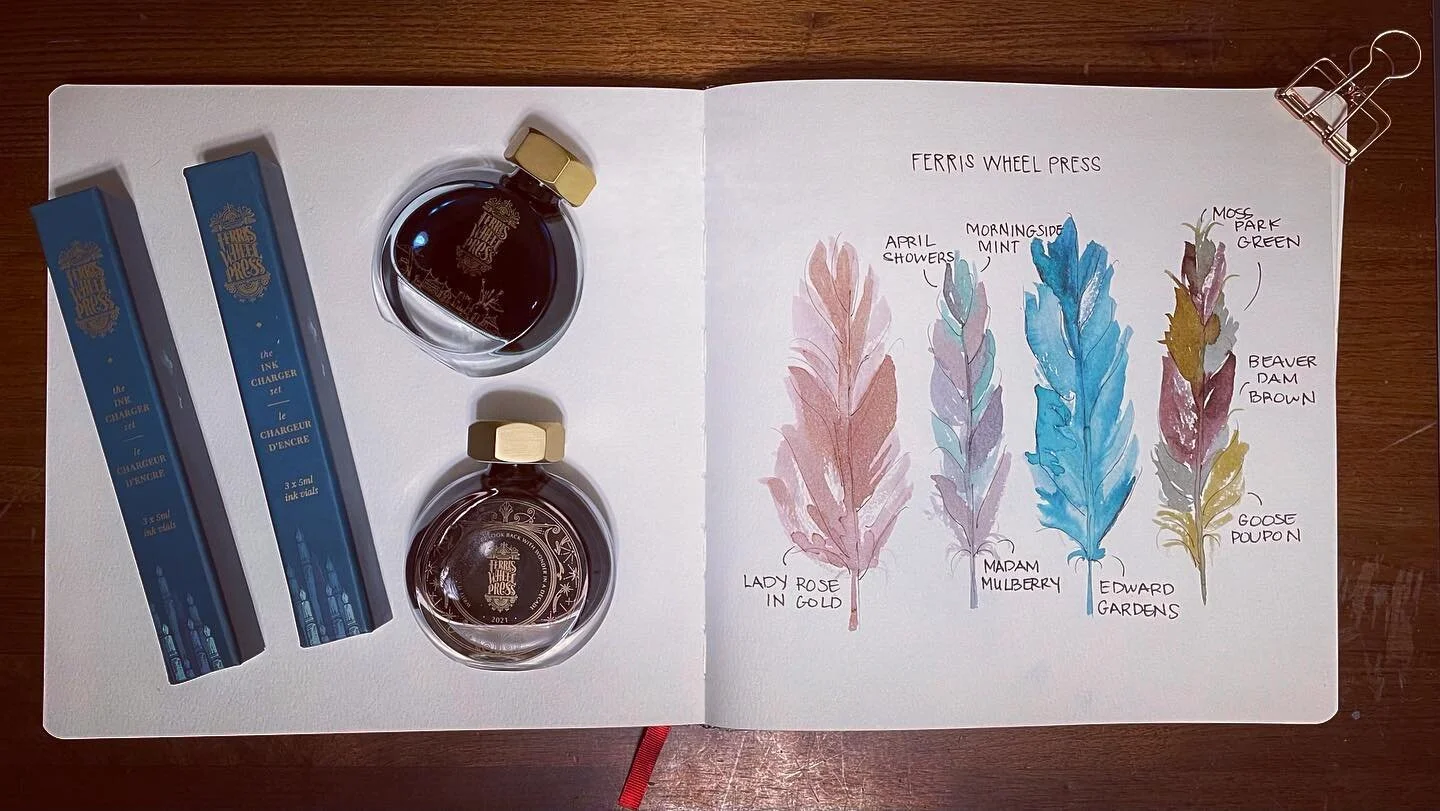 FERRIS
WHEEL
PRESS
the
INK
CHARGER
set
le
CHARGEUR
D'ENCRE
3 x 5ml
ink vials
FERRIS
WHEEL
PRESS
the
INK
CHARGER
set
le
CHARGEUR
D'ENCRE
3 x 5ml
ink vials
FERRIS
WHEEL
PRESS
LOOK BACK WITH WONDER IN A DECADE
FERRIS
WHEEL
PRESS
2021
FERRIS WHEEL PRESS
LADY ROSE
IN GOLD
APRIL
SHOWERS
MORNINGSIDE
MINT
MADAM
MULBERRY
EDWARD
GARDENS
MOSS
PARK
GREEN
BEAVER
DAM
BROWN
GOOSE
POUPON